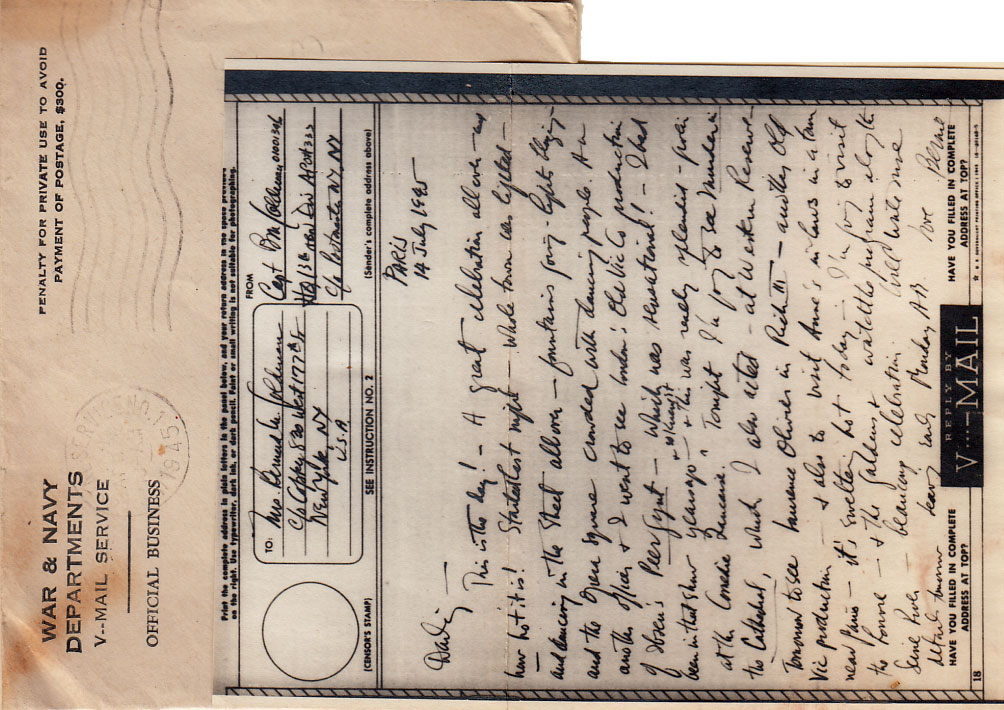 WAR & NAVY
DEPARTMENTS
V--MAIL SERVICE
OFFICIAL BUSINESS
PENALTY FOR PRIVATE USE TO AVOID
PAYMENT OF POSTAGE, $300.
1945
Print the complete address in plain letters in the panel below, and your return address in the space provided
on the right. Use typewriter, dark ink, or dark pencil. Faint or small writing is not suitable for photographing.
(CENSOR'S STAMP)
TO:
Mrs.
c/o 820 West 177th St
New York, NY
U.S.A
SEE INSTRUCTION NO. 2
FROM
Capt
Hq 13th APO 333
c/o Postmaster NY NY
(Sender's complete address above)
PARIS
14 July 1945
This is the day! — A great celebration all over — and
how hot it is! last night — Whole town was lighted —
and dancing in the street all over — fountains going — lights
and the Opera square crowded with dancing people. An
another officer & I went to see London's Old Vic Co production
of Ibsen's Peer Gynt — which was sensational! — I had
been in that show years ago — & this was really splendid —
at the Comedie Francaise. Tonight I'm going to see Murder in
the Cathedral, which I also acted — at Western Reserve
Tomorrow to see Laurence Olivier in Rich III — another Old
Vic production — & also to visit Anne's in laws in a town
near Paris — it's swelter hot today — I'm going to visit
the — & the gardens & watch the program along the
Seine River — celebration. Will write more
details tomorrow leave early Monday AM love
HAVE YOU FILLED IN COMPLETE
ADDRESS AT TOP?
REPLY BY
V...-MAIL
HAVE YOU FILLED IN COMPLETE
ADDRESS AT TOP?
18